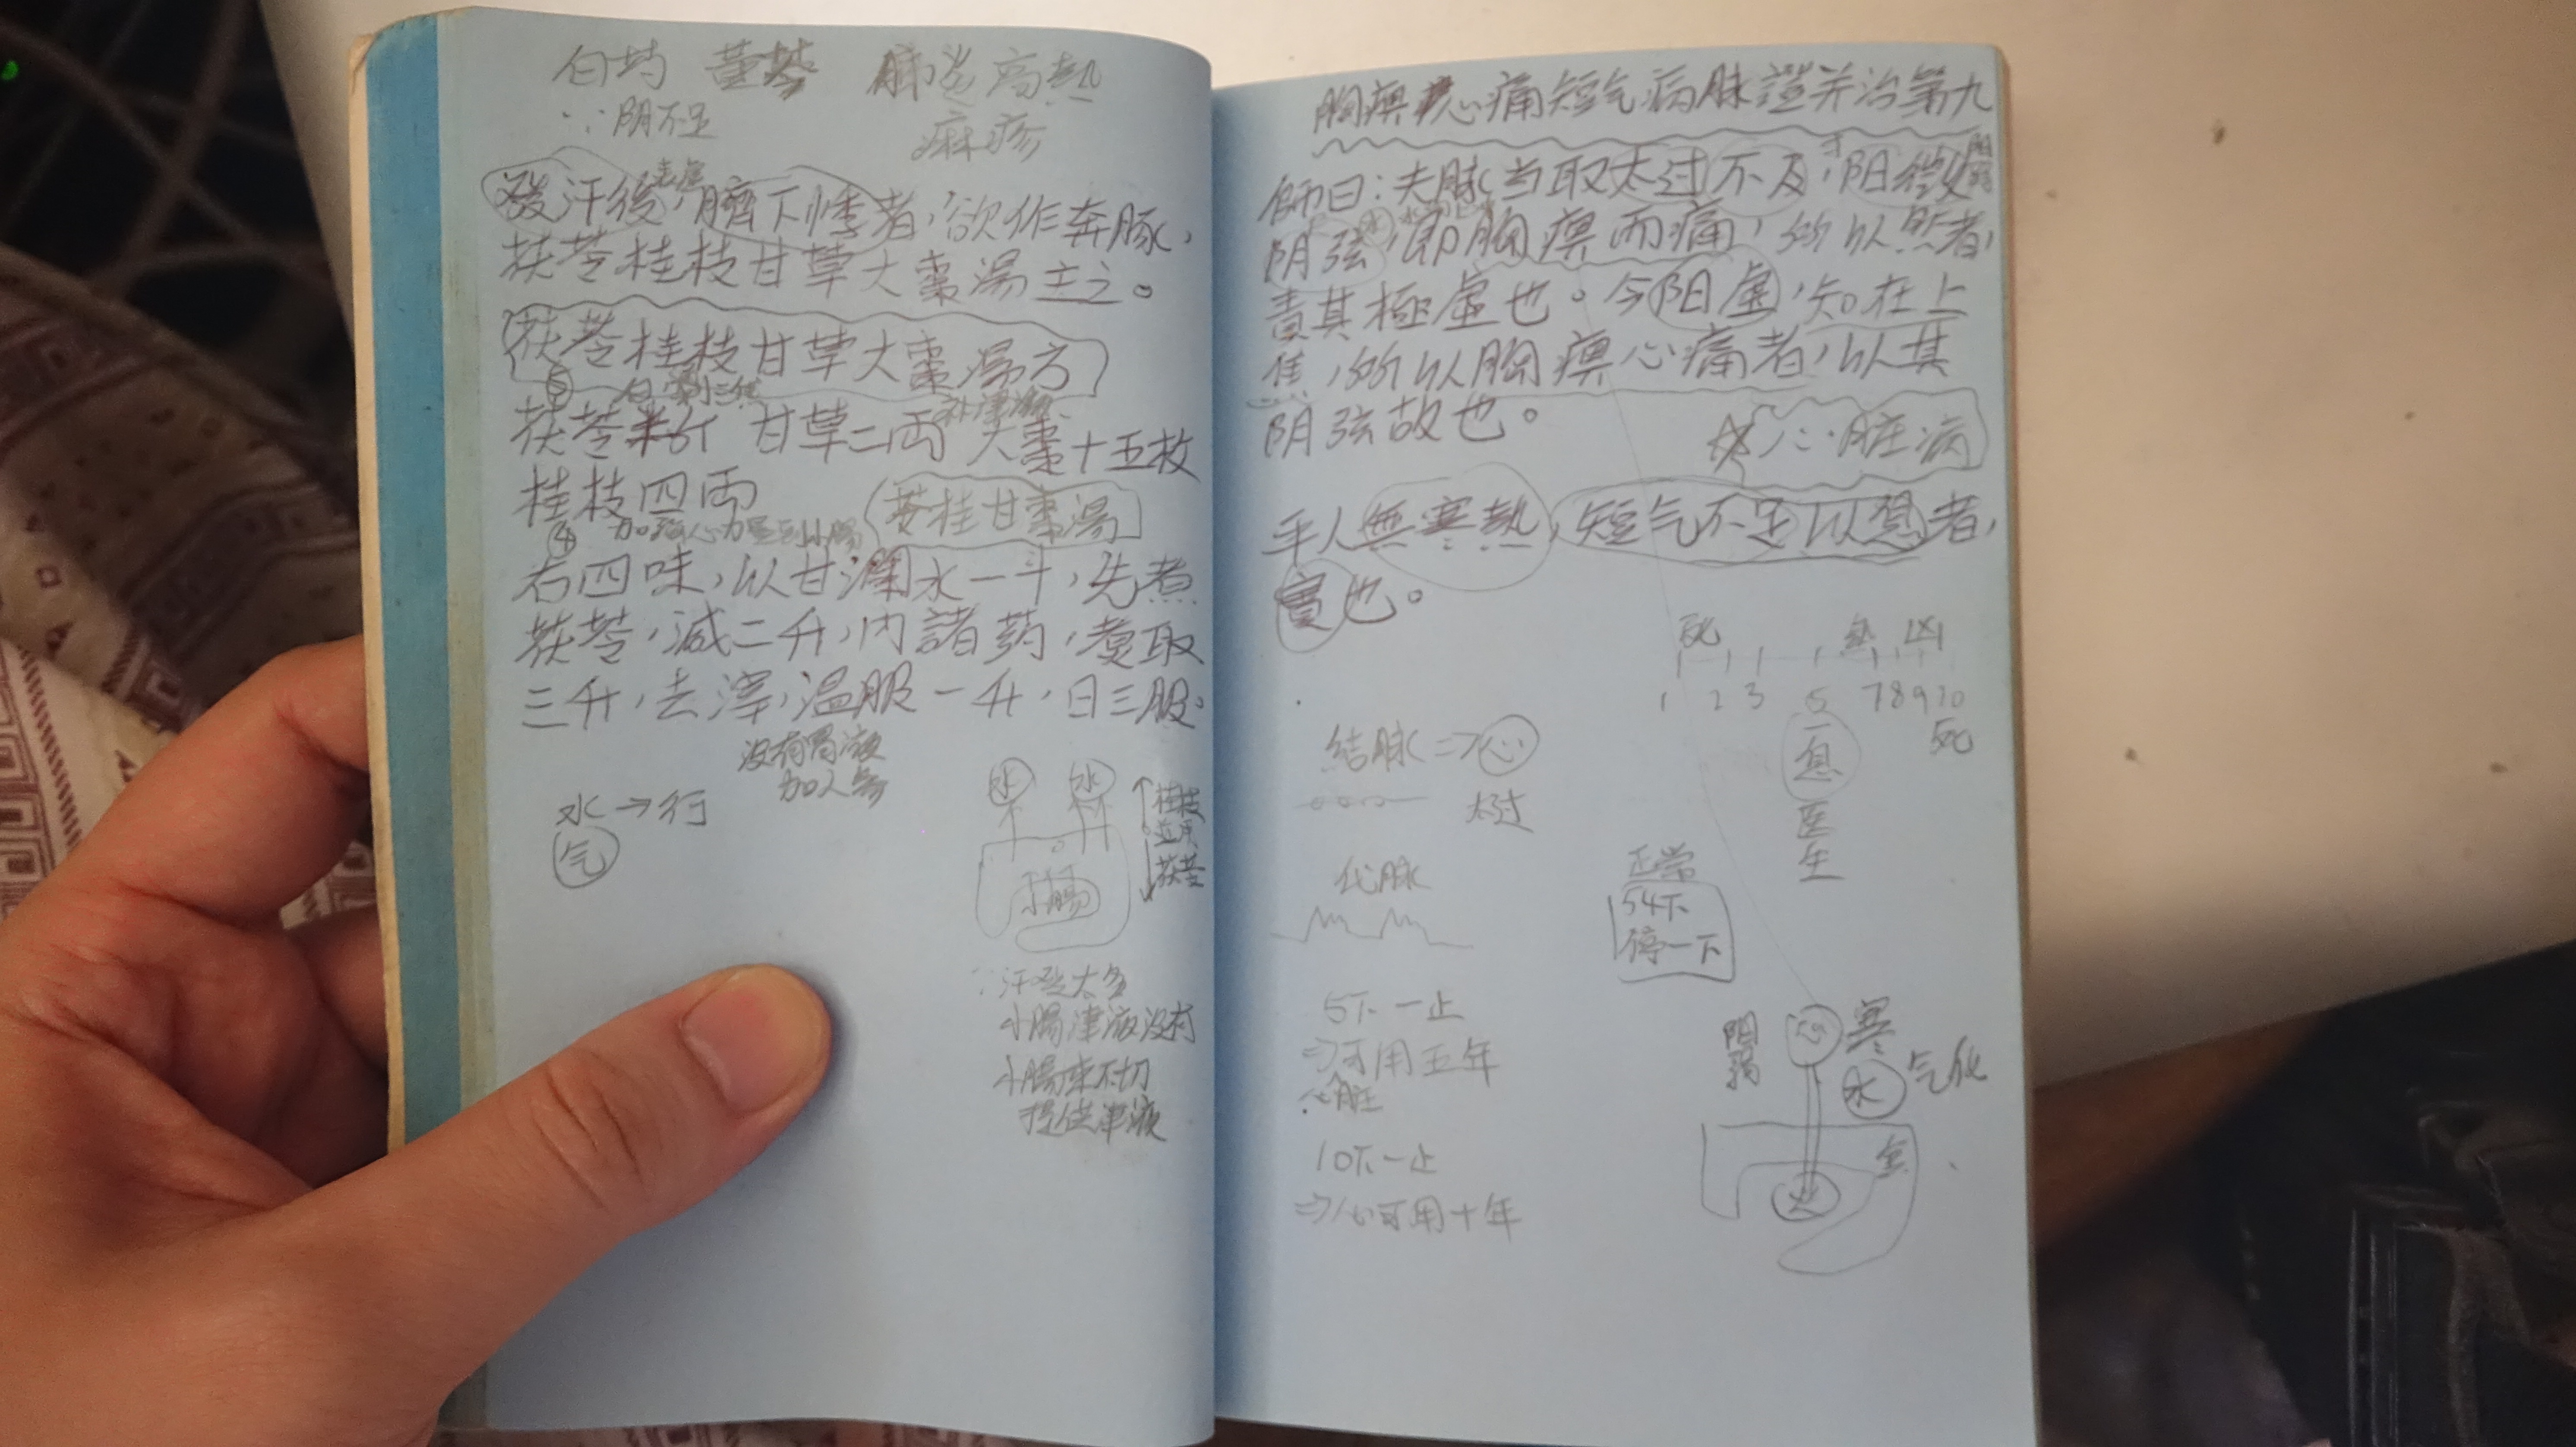 白芍 黃芩 肺炎高熱
∵阴不足 麻疹
發汗後，臍下悸者，欲作奔豚，
表虛
茯苓桂枝甘草大棗湯主之。
茯苓桂枝甘草大棗湯方
茯苓半斤 甘草二両 大棗十五枚
桂枝四両
苓桂甘棗湯
④
右四味，以甘瀾水一斗，先煮
茯苓，減二升，内諸药，煮取
三升，去滓，温服一升，日三服。
没有胃液
加人参
水→行
气
水 水
桂枝
茯苓
小腸
∵汗发太多
小腸津液没有
小腸来不切
提供津液
胸痹心痛短气病脉證并治第九
師曰：夫脉当取太过不及，阳微
阴弦，即胸痹而痛，所以然者，
責其極虛也。今阳虛，知在上
焦，所以胸痹心痛者，以其
阴弦故也。
∵脏病
平人無寒熱，短气不足以息者，
實也。
死 熱 凶
1 2 3 5 7 8 9 10
死
一息
医生
結脉⇒心
太过
代脉
正常
54下
停一下
5下一止
⇒可用五年
心脏
10下一止
⇒心可用十年
阳弱
心
寒
水 气化
火